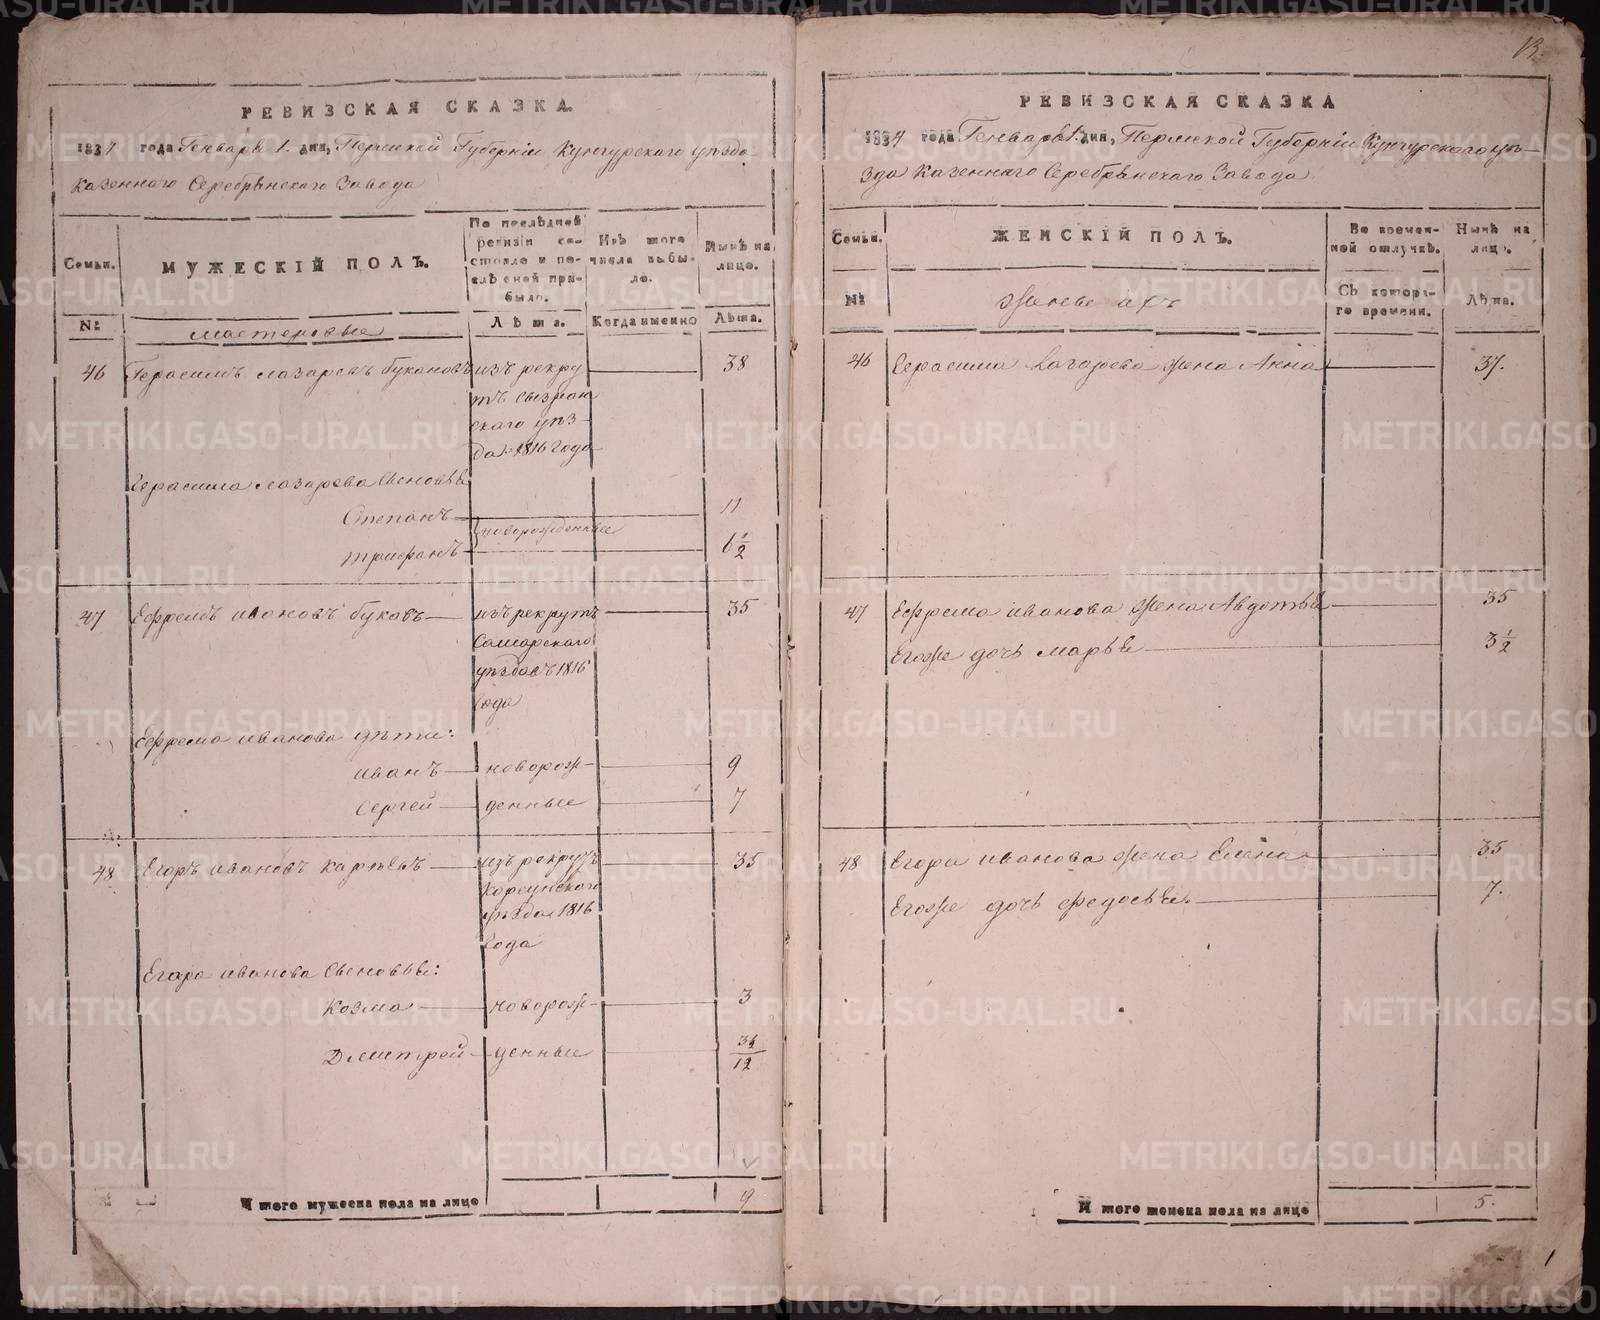 РЕВИЗСКАЯ СКАЗКА.
1834 года Генваря 1. дня, Пермской Губернiи Кунгурского уѣзда
казеннаго Серебрянскаго Завода
Семьи.
МУЖЕСКIЙ ПОЛЪ.
По послѣдней ревизiи состояло и послѣ оной прибыло.
Изъ того числа выбыло.
Нынѣ на лицо.
№
мастеровые
Лѣта.
Когда именно
Лѣта.
46 Герасимъ лазаревъ букановъ изъ рекру 38
тъ Сызран
скаго уѣз-
да 1816 Года
Герасима лазарева Сыновья
Степанъ 11
новорожденные
трифанъ 6 1/2
47 Ефремъ ивановъ буковъ изъ рекрутъ 35
Самарскаго
уѣзда съ 1816
Года
Ефрема иванова дѣти:
иванъ новорож- 9
Сергей денные 7
48 Егоръ ивановъ карпѣевъ изъ рекрутъ 35
Корсунскаго
уѣзда 1816
Года
Егора иванова Сыновья:
Козма новорож- 3
Дмитрей денные
12
Итого мужеска пола на лицо 9
13.
РЕВИЗСКАЯ СКАЗКА
1834 года Генваря 1. дня, Пермской Губернiи Кунгурскаго уѣ-
зда Казеннаго Серебрянскаго Завода
Семьи.
ЖЕНСКIЙ ПОЛЪ.
Во временной отлучкѣ.
Нынѣ на лицо.
№
жены ихъ
Съ котораго времени.
Лѣта.
46 Герасима Лазарева жена Анна 37.
47 Ефрема иванова жена Авдотья 35
Егоже дочь марья 3 1/2
48 Егора иванова жена Елена 35
Егоже дочь федосья 7.
Итого женска пола на лицо 5.
METRIKI.GASO-URAL.RU